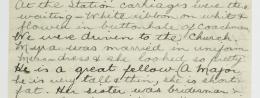 At the station carriages were there
waiting - White ribbon on whip &
flowers in buttonhole of coachman
We were driven to the Church,
Myra was married in uniform
dress & she looked so pretty
He is a great fellow A Major.
he is very tall & thin, she is short &
fat. Her sister was bridesmaid